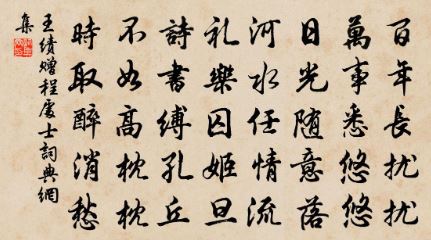 百年長扰扰
萬事悉悠悠
日光随意落
河水任情流
礼樂囚姬旦
詩書縛孔丘
不如高枕枕
時取醉消愁
王績贈程處士詞典網
集